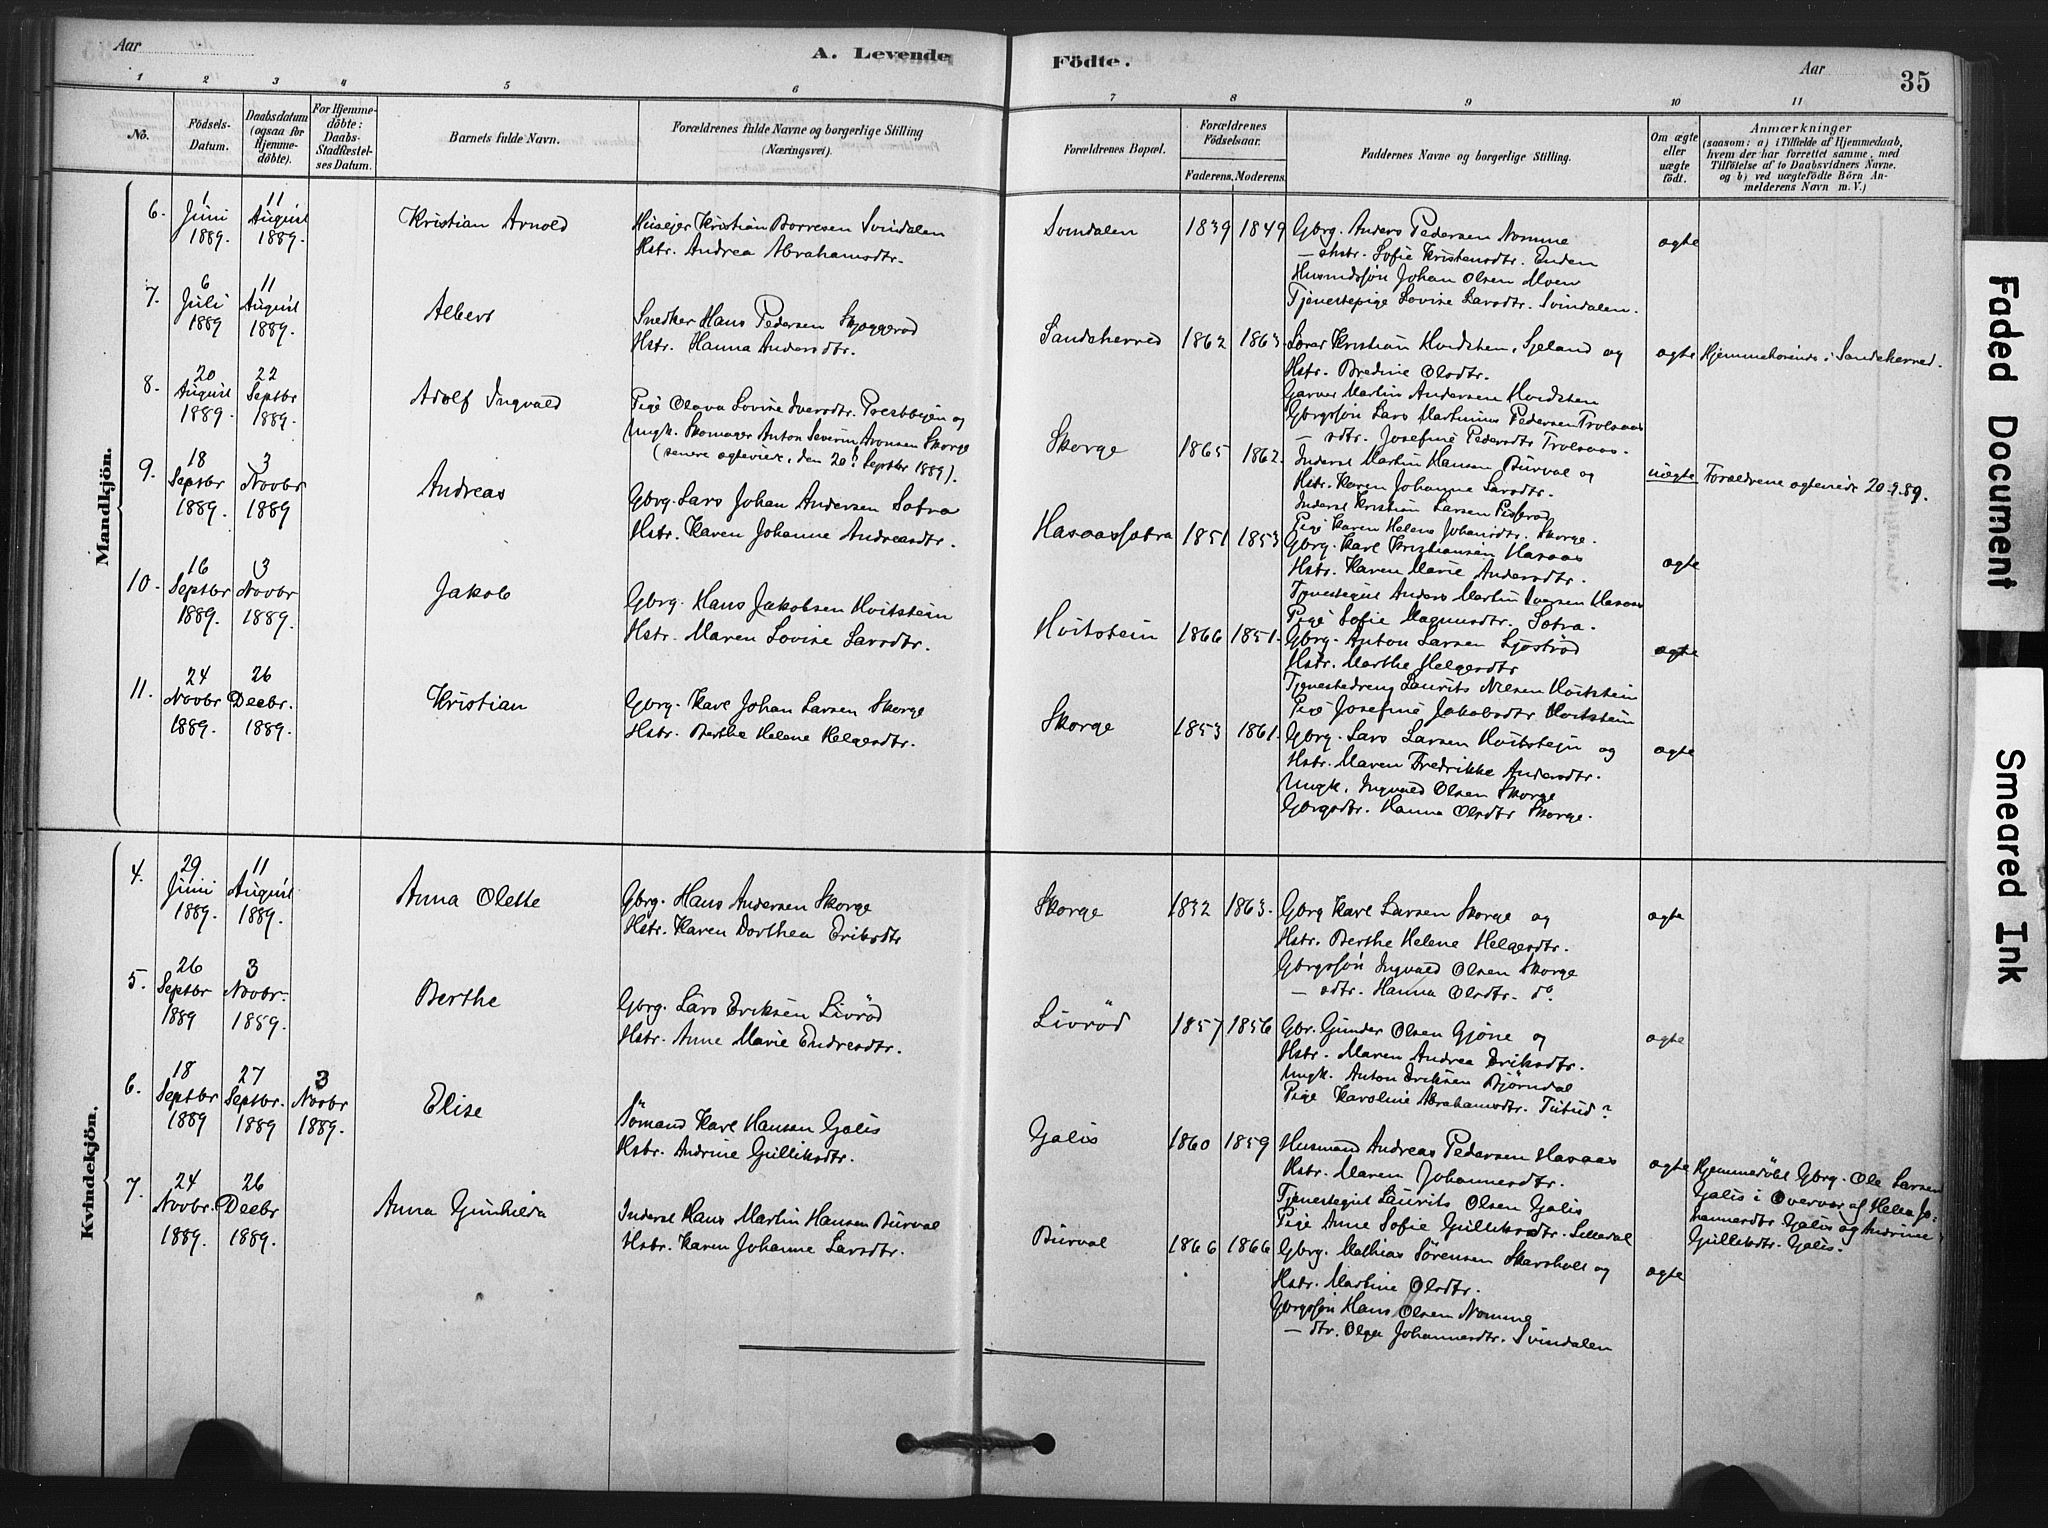 Aar
A. Levende
Födte.
Aar
35
1 2 3 4 5 6 7 8 9 10 11
No.
Födsels-Datum.
Daabsdatum (ogsaa for Hjemme-döbte).
For Hjemme-döbte: Daabs-Stadfæstel-ses Datum.
Barnets fulde Navn.
Forældrenes fulde Navne og borgerlige Stilling (Næringsvei).
Forældrenes Bopæl.
Forældrenes Födselsaar.
Faderens. Moderens.
Faddernes Navne og borgerlige Stilling.
Om ægte eller uægte födt.
Anmærkninger
(saasom: a) i Tilfælde af Hjemmedaab, hvem der har forrettet samme, med Tilföielse af to Daabsvidners Navne. og b) ved uægtefödte Börn An-melderens Navn m. V.)
Mandkjön.
6. 1 Juni 1889. 11 August 1889. Kristian Arnold
Husejer Kristian Borresen Svindalen
Hstr. Andrea Abrahamsdtr.
Svindalen 1839 1849
Gbrg. Anders Pedersen Nomme
— dstr. Sofie Kristensdtr. Enden
Husmdssøn Johan Olsen Moen
Tjenestepige Lovise Larsdtr. Svindalen.
ægte
7. 6 Juli 1889 11 August 1889. Albert
Snedker Hans Pedersen Skjoggerød
Hstr. Hanna Andersdtr.
Sandeherred 1862 1863
Kristian Hvidsten, Sjeland og
Hstr. Bredine Olsdtr.
Garver Martin Andersen Hvidsten
ægte
Hjemmehørende i Sandeherred.
8. 20 August 1889. 22 Septbr 1889. Adolf Ingvald
Pige Olava Lovise Iversdtr. Prestbyen og
Ungk. Skomager Anton Severin Aronsen Skorge
(senere ægteviede, den 20d Septbr 1889).
Skorge 1865 1862.
Gbrgssøn Lars Martinius Pedersen Trolsaas
— sdtr. Josefine Pedersdtr Trolsaas.
Inderst Martin Hansen Burval og
Hstr. Karen Johanne Larsdtr.
Inderst Kristian Larsen
Pige Karen Helene Johansdtr. Skorge.
uægte
Forældrene ægteviede 20.9.89.
9. 18 Septbr 1889. 3 Novbr 1889 Andreas
Gbrg. Lars Johan Andersen Sætra
Hstr. Karen Johanne Andreasdtr.
Hasaassætra 1851 1853
Gbrg. Karl Kristiansen Hasaas
Hstr. Karen Marie Andersdtr.
Tjenestegut Anders Martin Iversen Hasaas
Pige Sofie Magnusdtr. Sætra.
ægte
10. 16 Septbr 1889. 3 Novbr 1889. Jakob
Gbrg. Hans Jakobsen Hvitstein
Hstr. Maren Lovise Larsdtr.
Hvitstein 1866 1851.
Gbrg. Anton Larsen Sjøstrød
Hstr. Marthe Helgesdtr
Tjenestedreng Laurits Nilsen Hvitstein
Pige Josefine Jakobsdtr. Hvitstein
ægte
11. 24 Novbr 1889. 26 Decbr. 1889. Kristian
Gbrg. Karl Johan Larsen Skorge
Hstr. Berthe Helene Helgesdtr.
Skorge 1853 1861.
Gbrg. Lars Larsen Hvitstejn og
Hstr. Maren Fredrikke Andersdtr.
Ungk. Ingvald Olsen Skorge
Gbrgsdtr. Hanna Olsdtr Skorge.
ægte
Kvindekjön.
4. 29 Juni 1889. 11 August 1889. Anna Olette
Gbrg. Hans Andersen Skorge
Hstr. Karen Dorthea Eriksdtr
Skorge 1832 1863.
Gbrg Karl Larsen Skorge og
Hstr. Berthe Helene Helgesdtr.
Gbrgssøn Ingvald Olsen Skorge
— sdtr. Hanna Olsdtr. do.
ægte
5. 26 Septbr 1889 3 Novbr. 1889. Berthe
Gbrg. Lars Eriksen Livrød
Hstr. Anne Marie Endresdtr.
Livrød 1857 1856
Gbr. Gunder Olsen Gjøne og
Hstr. Maren Andrea Eriksdtr.
Ungk. Anton Eriksen Bjørndal
Pige Karoline Abrahamsdtr.
ægte
6. 18 Septbr 1889 27 Septbr. 1889 3 Novbr 1889. Elise
Sömand Karl Hansen Galis
Hstr. Andrine Gulliksdtr.
Galis 1860 1859
Husmand Andreas Pedersen Hasaas
Hstr. Maren Johannesdtr.
Tjenestegut Laurits Olsen Galis
Pige Anne Sofie Gulliksdtr. Lilledal
ægte
Hjemmedöbt Gbrg. Ole Larsen
Galis i Overvær af Helen Jo-
hannesdtr Galis og Andrine
Gulliksdtr. Galis.
7. 24 Novbr. 1889. 26 Decbr 1889. Anna Gunhilda
Inderst Hans Martin Hansen Burval
Hstr. Karen Johanne Larsdtr.
Burval 1866 1866
Gbrg. Mathias Sørensen Skarsholt og
Hstr. Martine Olsdtr.
Gbrgssøn Hans Olsen Nomme
— dtr. Olga Johannesdtr. Svindalen
ægte
Faded Document
Smeared Ink